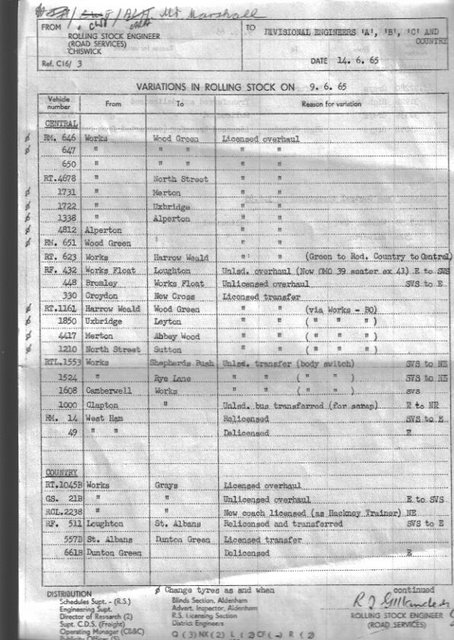 Mr Marshall
FROM
TO
ROLLING STOCK ENGINEER
(ROAD SERVICES)
CHISWICK
DIVISIONAL ENGINEERS 'A', 'B', 'C' AND
COUNTRY
Ref. C16/ 3
DATE 14. 6. 65
VARIATIONS IN ROLLING STOCK ON 9. 6. 65
Vehicle number From To Reason for variation
CENTRAL
ø RM. 646 Works Wood Green Licensed overhaul
ø 647 " " " " "
650 " " " " "
RT.4678 " North Street " "
ø 1731 " Merton " "
ø 1722 " Uxbridge " "
ø 1338 " Alperton " "
ø 4812 Alperton " "
ø RM. 651 Wood Green " "
RT. 623 Works Harrow Weald " " (Green to Red. Country to Central)
RF. 432 Works Float Loughton Unlsd. overhaul (Now OMO 39 seater ex 43) E to SVS
448 Bromley Works Float Unlicensed overhaul SVS to E
330 Croydon New Cross Licensed transfer
ø RT.1161 Harrow Weald Wood Green " " (via Works - BO)
ø 1850 Uxbridge Leyton " " ( " " " )
ø 4417 Merton Abbey Wood " " ( " " " )
ø 1210 North Street Sutton " " ( " " " )
RTL.1553 Works Shepherds Bush Unlsd. transfer (body switch) SVS to NE
1524 " Rye Lane " " ( " " ) SVS to NE
1608 Camberwell Works " " ( " " ) SVS
1000 Clapton " Unlsd. bus transferred (for scrap) E to NR
RM. 14 West Ham Relicensed SVS to E
49 " " Delicensed E
COUNTRY
RT.1045B Works Grays Licensed overhaul
GS. 21B " " Unlicensed overhaul E to SVS
RCL.2238 " Now coach licensed (as Hackney Trainer) NE
RF. 511 Loughton St. Albans Relicensed and transferred SVS to E
557B St. Albans Dunton Green Licensed transfer
661B Dunton Green Delicensed E
ø Change tyres as and when
continued
DISTRIBUTION
Schedules Supt. - (R.S.)
Engineering Supt.
Director of Research (2)
Supt. C.D.S. (Freight)
Operating Manager (CB&C)
Blinds Section, Aldenham
Advert. Inspector, Aldenham
R.S. Licensing Section
District Engineers
ROLLING STOCK ENGINEER
(ROAD SERVICES)